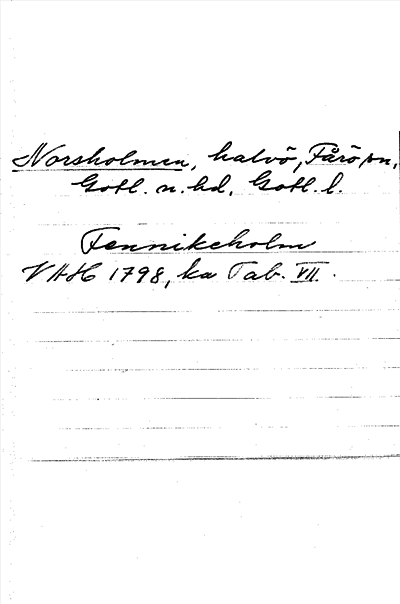 Norsholmen, halvö, Fårö sn,
Gotl. n. hd, Gotl. l.
Fennikeholm
VAH 1798, ka Tab. VII.